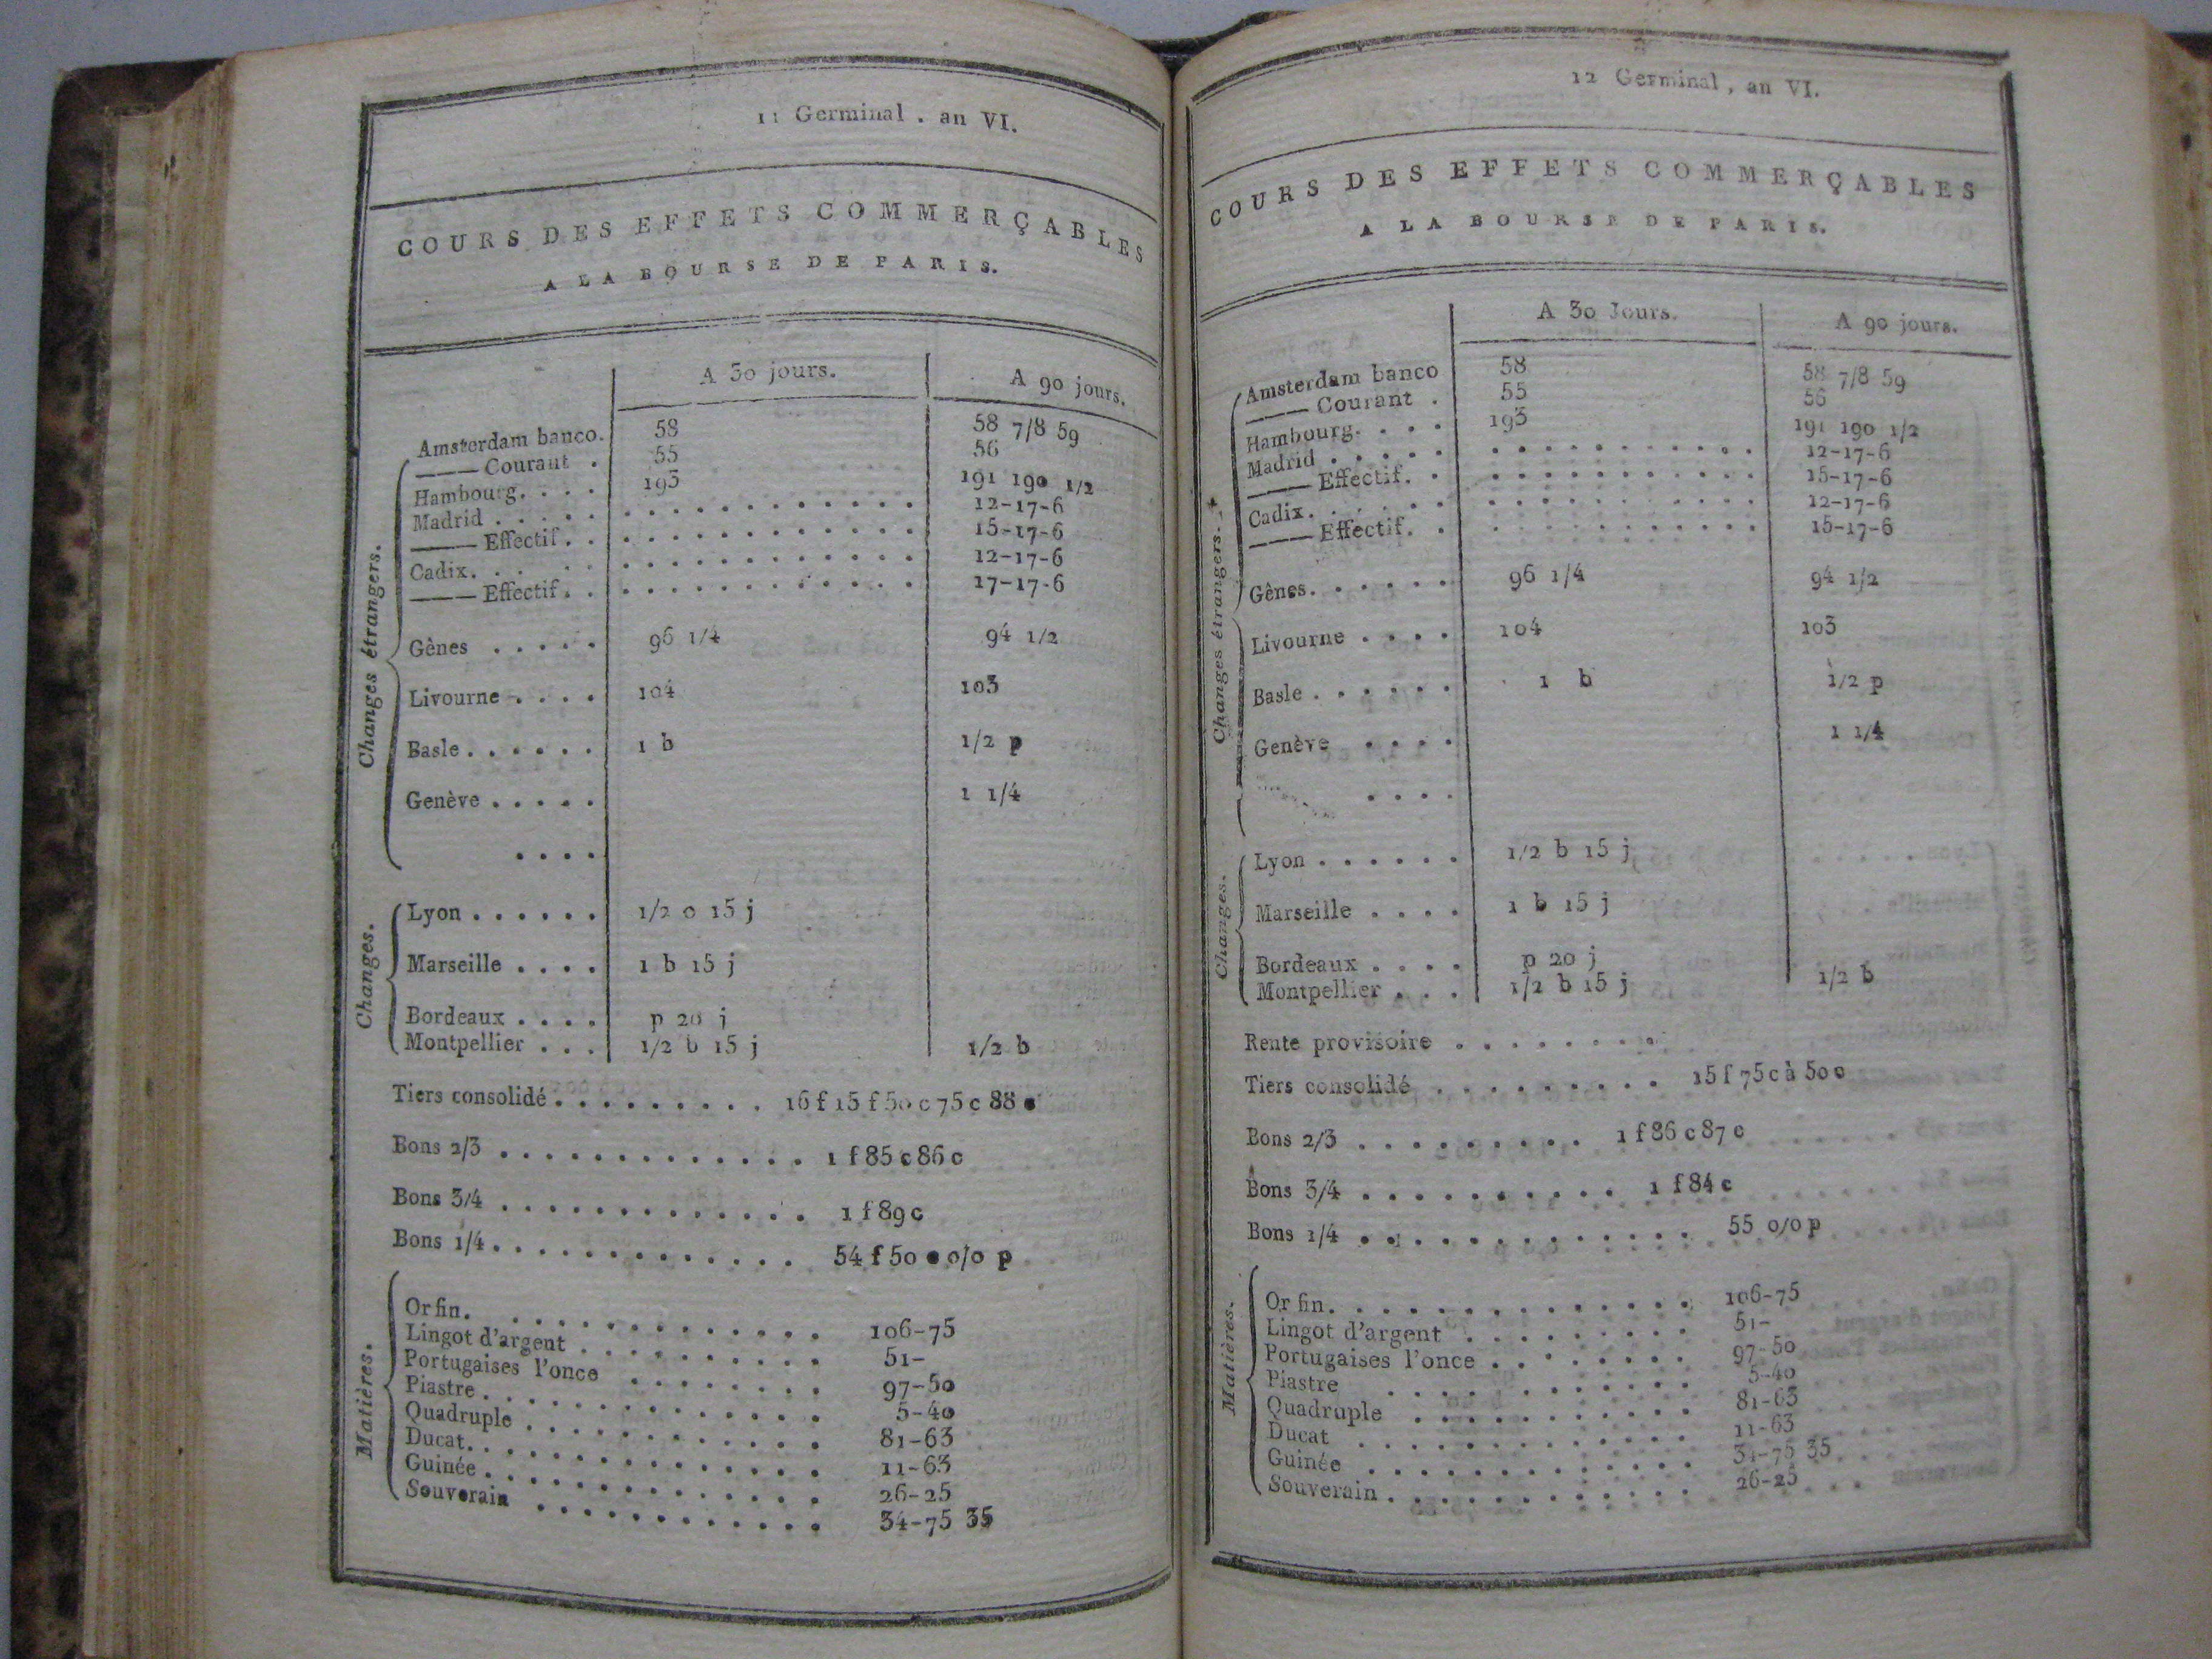 11 Germinal . an VI.
COURS DES EFFETS COMMERÇABLES
A LA BOURSE DE PARIS.
A 30 jours. A 90 jours.
Changes étrangers.
Amsterdam banco. 58 58 7/8 59
——— Courant . 55 56
Hambourg. . . . 193 191 190 1/2
Madrid . . . . . . . . . . . . . . . . . 12-17-6
——— Effectif. . . . . . . . . . . . . . 15-17-6
Cadix. . . . . . . . . . . . . . . . . 12-17-6
——— Effectif. . . . . . . . . . . . . . 17-17-6
Gênes . . . . . 96 1/4 94 1/2
Livourne . . . . 104 103
Basle . . . . . . 1 b 1/2 p
Genève . . . . . 1 1/4
. . . .
Changes.
Lyon . . . . . . 1/2 o 15 j
Marseille . . . . 1 b 15 j
Bordeaux . . . . p 20 j
Montpellier . . . 1/2 b 15 j 1/2 b
Tiers consolidé . . . . . . . . . 16 f 15 f 50 c 75 c 88
Bons 2/3 . . . . . . . . . . . . . 1 f 85 c 86 c
Bons 3/4 . . . . . . . . . . . . . 1 f 89 c
Bons 1/4 . . . . . . . . . . . . . 54 f 50 o/o p
Matières.
Or fin. . . . . . . . . . . . . 106-75
Lingot d'argent . . . . . . . . . . 51-
Portugaises l'once . . . . . . . . 97-50
Piastre . . . . . . . . . . . . . 5-40
Quadruple . . . . . . . . . . . . 81-63
Ducat. . . . . . . . . . . . . . 11-63
Guinée . . . . . . . . . . . . . 26-25
Souverain . . . . . . . . . . . . 34-75 35
12 Germinal, an VI.
COURS DES EFFETS COMMERÇABLES
A LA BOURSE DE PARIS.
A 30 Jours. A 90 jours.
Changes étrangers.
Amsterdam banco 58 58 7/8 59
——— Courant . 55 56
Hambourg. . . . 193 191 190 1/2
Madrid . . . . . . . . . . . . . . . . 12-17-6
——— Effectif. . . . . . . . . . . . . 15-17-6
Cadix. . . . . . . . . . . . . . . . 12-17-6
——— Effectif. . . . . . . . . . . . . 15-17-6
Gênes. . . . . . 96 1/4 94 1/2
Livourne . . . . 104 103
Basle . . . . . . 1 b 1/2 p
Genève . . . . 1 1/4
. . . .
Changes.
Lyon . . . . . . 1/2 b 15 j
Marseille . . . . 1 b 15 j
Bordeaux . . . . p 20 j
Montpellier . . . 1/2 b 15 j 1/2 b
Rente provisoire . . . . . . . .
Tiers consolidé . . . . . . . . . . 15 f 75 c à 50 c
Bons 2/3 . . . . . . . . . . 1 f 86 c 87 c
Bons 3/4 . . . . . . . . . . . 1 f 84 c
Bons 1/4 . . . . . . . . . . . . 55 o/o p
Matières.
Or fin. . . . . . . . . . . . . 106-75
Lingot d'argent . . . . . . . . 51-
Portugaises l'once . . . . . . . 97-50
Piastre . . . . . . . . . . . 5-40
Quadruple . . . . . . . . . . 81-63
Ducat . . . . . . . . . . . . 11-63
Guinée . . . . . . . . . . . . 34-75 35
Souverain . . . . . . . . . . . 26-25